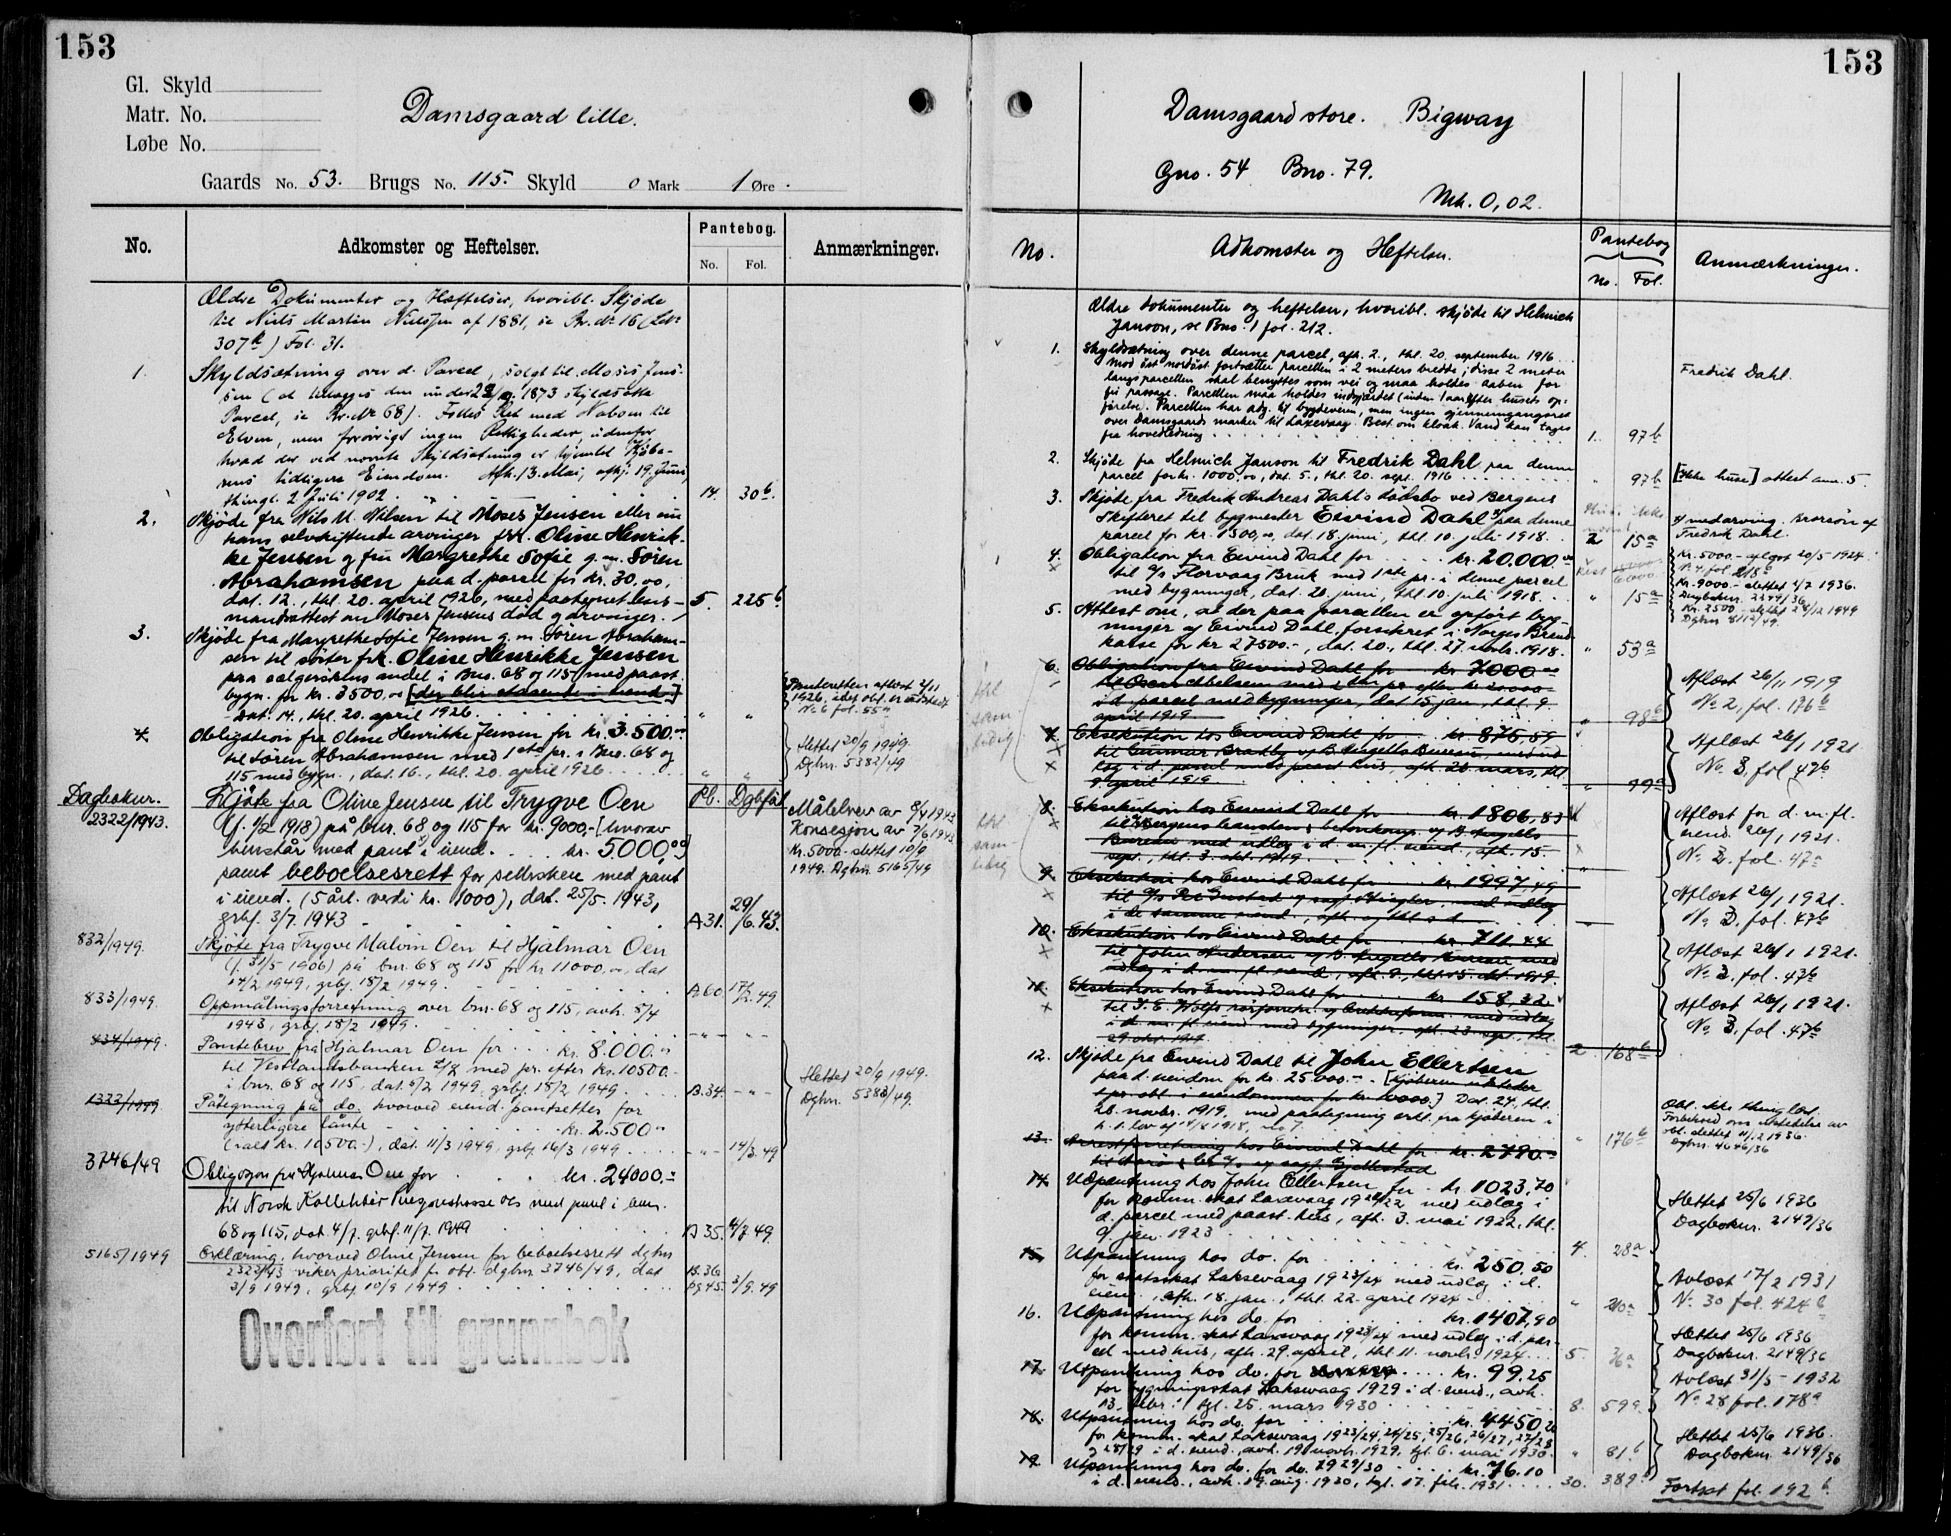 153
Gl. Skyld
Matr. No.
Løbe No.
Damsgaard lille.
Gaards No. 53. Brugs No. 115. Skyld 0 Mark 1 Øre.
No.
Adkomster og Heftelser.
Pantebog.
No. Fol.
Anmærkninger.
Ældre Dokumenter og Hæftelser, hvoribl. Skjøde
til Niels Martin Nielsen af 1881, se Br. No 16 (Lb.
307b) Fol. 31.
1. Skyldsætning over d. Parcel, solgt til Moses Jen-
sen
Parcel, se Br. No 68). Fælles Ret med Naboen til
Elven, men forøvrigt ingen Rettigheder udenfor
hvad der ved nævnte Skyldsætning er hjemlet Kjøbe-
rens tidligere Eiendom. Afh. 13. Mai, afhj. 19. Juni,
thingl. 2 Juli 1902. 14. 30b.
2. Skjøde fra Nils M. Nilsen til Moses Jensen eller nu
hans selvskiftende arvinger frk. Oline Henrik-
ke Jensen og fru Margrethe Sofie g. m. Søren
Abrahamsen paa d. parcel for kr. 30.00,
dat. 12., thl. 20. april 1926, med paategnet lens-
mandsattest om Moses Jensens død og arvinger. 5. 225b
3. Skjøde fra Margrethe Sofie Jensen g. m. Søren Abraham-
sen til søster frk. Oline Henrikke Jensen
paa sælgerskens andel i Bno. 68 og 115 med paast.
bygn. for kr. 3500.00 [der blir staaende i eiend.]
Dat. 14., thl. 20. april 1926. " "
Panteretten aflæst 2/11
1926, idet obl. er
No 6 fol. 55a
4. Obligation fra Oline Henrikke Jensen for kr. 3.500.00
til Søren Abrahamsen med 1ste pr. i Bno. 68 og
115 med bygn., dat. 16., thl. 20. april 1926 " "
Slettet 20/9 1949.
Dgbnr. 5382/49
Dagboknr. 2322/1943.
Skjøte fra Oline Jensen til Trygve Oen Pb. Dgbført
(f. 1/2 1918) på bnr. 68 og 115 for kr. 9000,- [hvorav
henstår med pant i eiend. kr. 5.000,00]
samt beboelsesrett for sellersken med pant
i eiend. (5 årl. verdi kr. 1000), dat. 25/5. 1943,
grbf. 3/7. 1943 A31. 29/6.43.
Målebrev av 8/4 1943
Konsesjon av 7/6 1943
Kr. 5000.- slettet 10/9
1949. Dgbnr 5165/49
832/1949. Skjøte fra Trygve Malvin Oen til Hjalmar Oen
(f. 31/5 1906) på bnr. 68 og 115 for kr 11000.00, dat
14/2 1949, grbf. 18/2 1949. A60 17/2.49
833/1949. Oppmålingsforretning over bnr. 68 og 115, avh. 8/4
1943, grbf. 18/2 1949. - " - - " -
834/1949. Pantebrev fra Hjalmar Oen for kr. 8.000.00
til Vestlandsbanken A/S med pr. efter kr. 10500.-
i bnr. 68 og 115, dat. 5/2 1949, grbf. 18/2 1949. B.34. - " -
Slettet 20/9 1949.
Dgbnr. 5383/49.
1322/1949 Påtegning på do. hvorved eiend. pantsettes for
ytterligere lånte kr. 2.500.00
(ialt kr. 10500.-), dat. 11/3 1949, grbf. 16/3 1949 - " - 14/3.49
3746/49 Obligasjon fra Hjalmar Oen for kr. 24000.-
til Norsk Kollektiv Pensjonskasse o/s med pant i bnr.
68 og 115, dat 4/7. grbf. 11/7. 1949 B35. 4/7 49
5165/1949 Erklæring, hvorved Oline Jensen for beboelsesrett dgbnr
2322/43 viker prioritet f. obl. dgbnr 3746/49, dat
3/9 1949, grbf. 10/9 1949 B.36 pg 45. 3/9.49
Overført til grunnbok
153
Damsgaard store. Bigway
Gno. 54 Bno. 79.
Mk. 0,02.
No.
Adkomster og Heftelser.
Pantebog
No. Fol.
Anmærkninger.
Ældre dokumenter og heftelser, hvoribl. skjøde til Helmich
Janson, se Bno. 1 fol. 212.
1. Skyldsætning over denne parcel, afh. 2., thl. 20. september 1916.
Mod øst nordøst fortsætter parcellen i 2 meters bredde; disse 2 meter
langs parcellen skal benyttes som vei og maa holdes aaben for
fri passage. Parcellen maa holdes indgjærdet (inden 1 aar efter husets op-
førelse. Parcellen har adg. til bygdeveien, men ingen gjennemgangsret
over Damsgaards marker til Laxevaag. Best. om kloak. Vand kan tages
fra hovedledning 1. 97b
Fredrik Dahl.
2. Skjøde fra Helmich Janson til Fredrik Dahl paa denne
parcel for kr. 1000,00, dat. 5., thl. 20. sept. 1916 " 97b
[Ikke huse] attest anm. 5.
3. Skjøde fra Fredrik Andreas Dahls dødsbo ved Bergens
Skifteret til bygmester Eivind Dahl x) paa denne
parcel for kr. 1500,00, dat. 18. juni, thl. 10. juli 1918. 2 15a
x) medarving. Brorsøn af
Fredrik Dahl.
4. Obligation fra Eivind Dahl for kr. 20.000.00
til A/s Florvaag Bruk med 1ste pr. i denne parcel
med bygninger, dat. 20. juni, thl. 10. juli 1918. " 15a
Kr. 5000.- aflæst 20/5 1924
Kr. 9000.- slettet 4/7 1936.
Dagboknr. 2249/36
Kr. 2500 slettet
5. Attest om, at der paa parcellen er opført byg-
ninger af Eivind Dahl, forsikret i Norges Brand-
kasse for kr 27500.-, dat. 20., thl. 27. novbr. 1918. " 53a
6. Obligation fra Eivind Dahl for kr. 7000.00
i d. parcel med bygninger, dat 15 jan., thl. 9
april 1919 " 98b
Aflæst 26/11 1919
No 2, fol. 176b
7. Eksekution hos Eivind Dahl for kr. 876,59
til Gunnar Brattly
i d. parcel med paast. hus, afh. 26. mars, thl
9 april 1919 " 99a
Aflæst 26/1 1921
No 3, fol 47b
8. Eksekution hos Eivind Dahl for kr. 1806,83
Bureau med udlæg i d. m. fl. eiend., afh. 15.
sept., thl. 3. okt. 1919
Aflæst for d. m. fl.
eiend. 26/1 1921.
No 3. fol. 47b
9. Eksekution hos Eivind Dahl for kr. 1997,49
i de samme eiend., afh. og thl. s. d.
Aflæst 26/1 1921.
No 3, fol. 47b
10. Eksekution hos Eivind Dahl for kr. 711.44
til John Andersen
udlæg i d. m. fl. eiend., afh. 9., thl. 15. okt. 1919.
Aflæst 26/1 1921.
No 3, fol. 47b
11. Eksekution hos Eivind Dahl for kr. 158,32
i d. m. fl. eiend. med bygninger, afh. 23. sept., thl.
29 okt. 1919 2 168b
Aflæst 26/1 1921.
No 3, fol. 47b
12. Skjøde fra Eivind Dahl til John Ellertsen
paa d. eiendom for kr. 25000.- [Kjøberen utsteder
1 pr. obl. i eiendommen for kr. 10000.] Dat. 24., thl.
28. novbr. 1919, med paategning erkl. fra kjøberen i
" 176b
Obl. ikke thinglæst.
Forbehold om utstedelse av
obl. slettet 11/12 1936.
Dgbnr. 4646/36
13. Arrestforretning hos Eivind Dahl for kr. 2790.-
14. Udpantning hos John Ellertsen for kr. 1023,70
for komm. skat Laxevaag 1921/22 med udlæg i
d. parcel med paast. hus, afh. 3. mai 1922, thl.
9. jan. 1923 4. 28a
Slettet 25/6 1936
Dagboknr. 2149/36
15. Utpantning hos do. for kr. 250.50
for statsskat Laksevaag 1923/24 med udlæg i d.
eien., afh. 18. jan., thl. 22. april 1924 "
Avlæst 17/2 1931
No 30 fol. 424b
16. Utpantning hos do. for kr. 1407,90
for komm. skat Laxevaag 1923/24 med udlæg i d. par-
cel med hus, afh. 29. april, thl. 11. novbr. 1924. 5.
Slettet 25/6 1936
Dagboknr. 2149/36
17. Utpantning hos do. for kr. 99.25
for bygningsskat Laksevaag 1929 i d. eiend., avh.
13. febr., tgl. 25. mars 1930 8. 59a
Avlæst 31/5 - 1932
No 28 fol. 178a
18. Utpantning hos do. for kr. 4450
for komm. skat Laksevaag 1923/24, 24/25, 25/26, 26/27, 27/28
og 28/29 i d. eiend., avh. 19. novbr. 1929, tgl. 6. mai 1930. " 81b
Slettet 25/6 1936.
Dagboknr. 2149/36
19. Utpantning hos do. for do. 1929/30 kr. 76.10
i d. eiend., avh. 19. aug. 1930, tgl. 17. febr. 1931 30. 389
Fortsat fol. 192b.